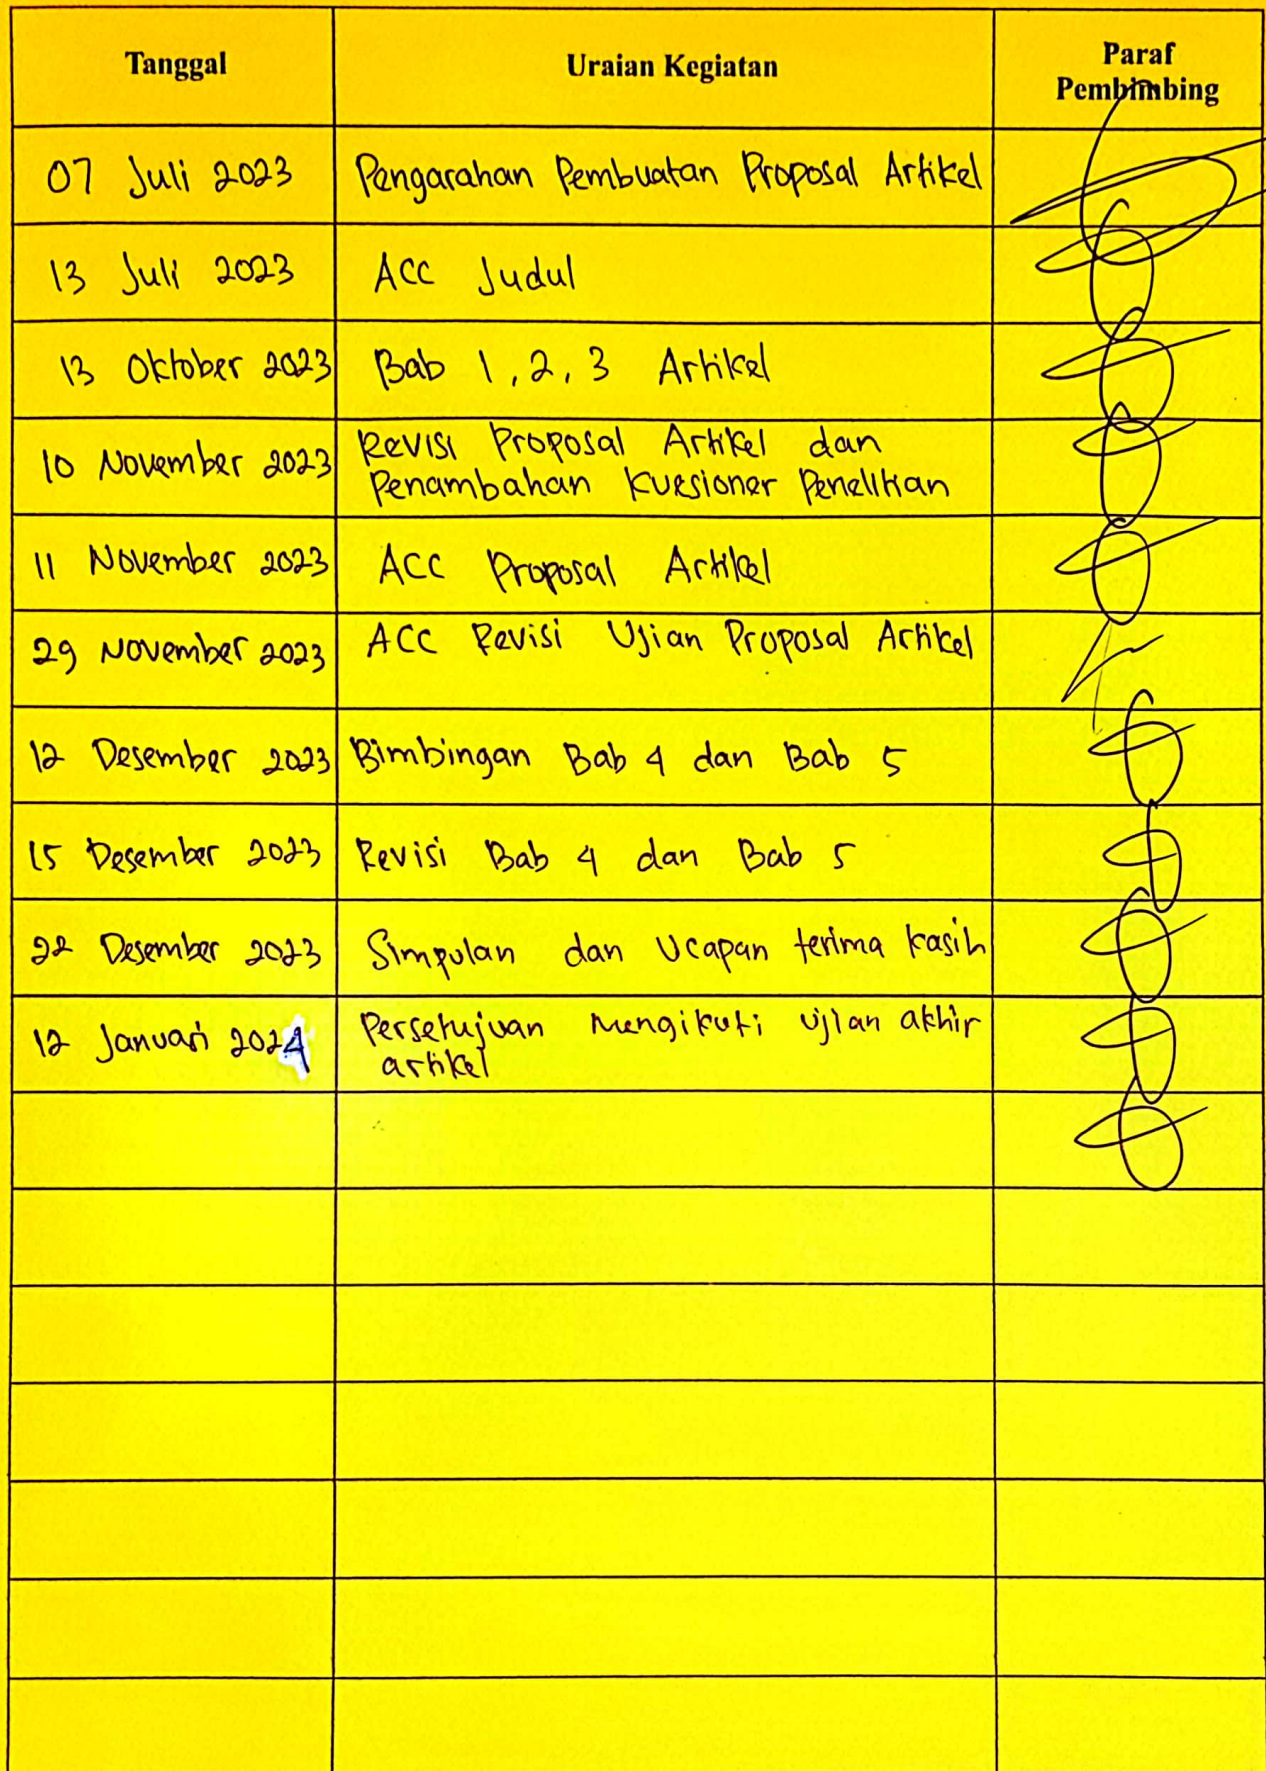 Tanggal Uraian Kegiatan Paraf Pembimbing
07 Juli 2023 Pengarahan Pembuatan Proposal Artikel
13 Juli 2023 ACC Judul
13 Oktober 2023 Bab 1, 2, 3 Artikel
10 November 2023 Revisi Proposal Artikel dan
Penambahan Kuesioner Penelitian
11 November 2023 ACC Proposal Artikel
29 November 2023 ACC Revisi Ujian Proposal Artikel
12 Desember 2023 Bimbingan Bab 4 dan Bab 5
15 Desember 2023 Revisi Bab 4 dan Bab 5
22 Desember 2023 Simpulan dan Ucapan terima kasih
12 Januari 2024 Persetujuan mengikuti ujian akhir
artikel